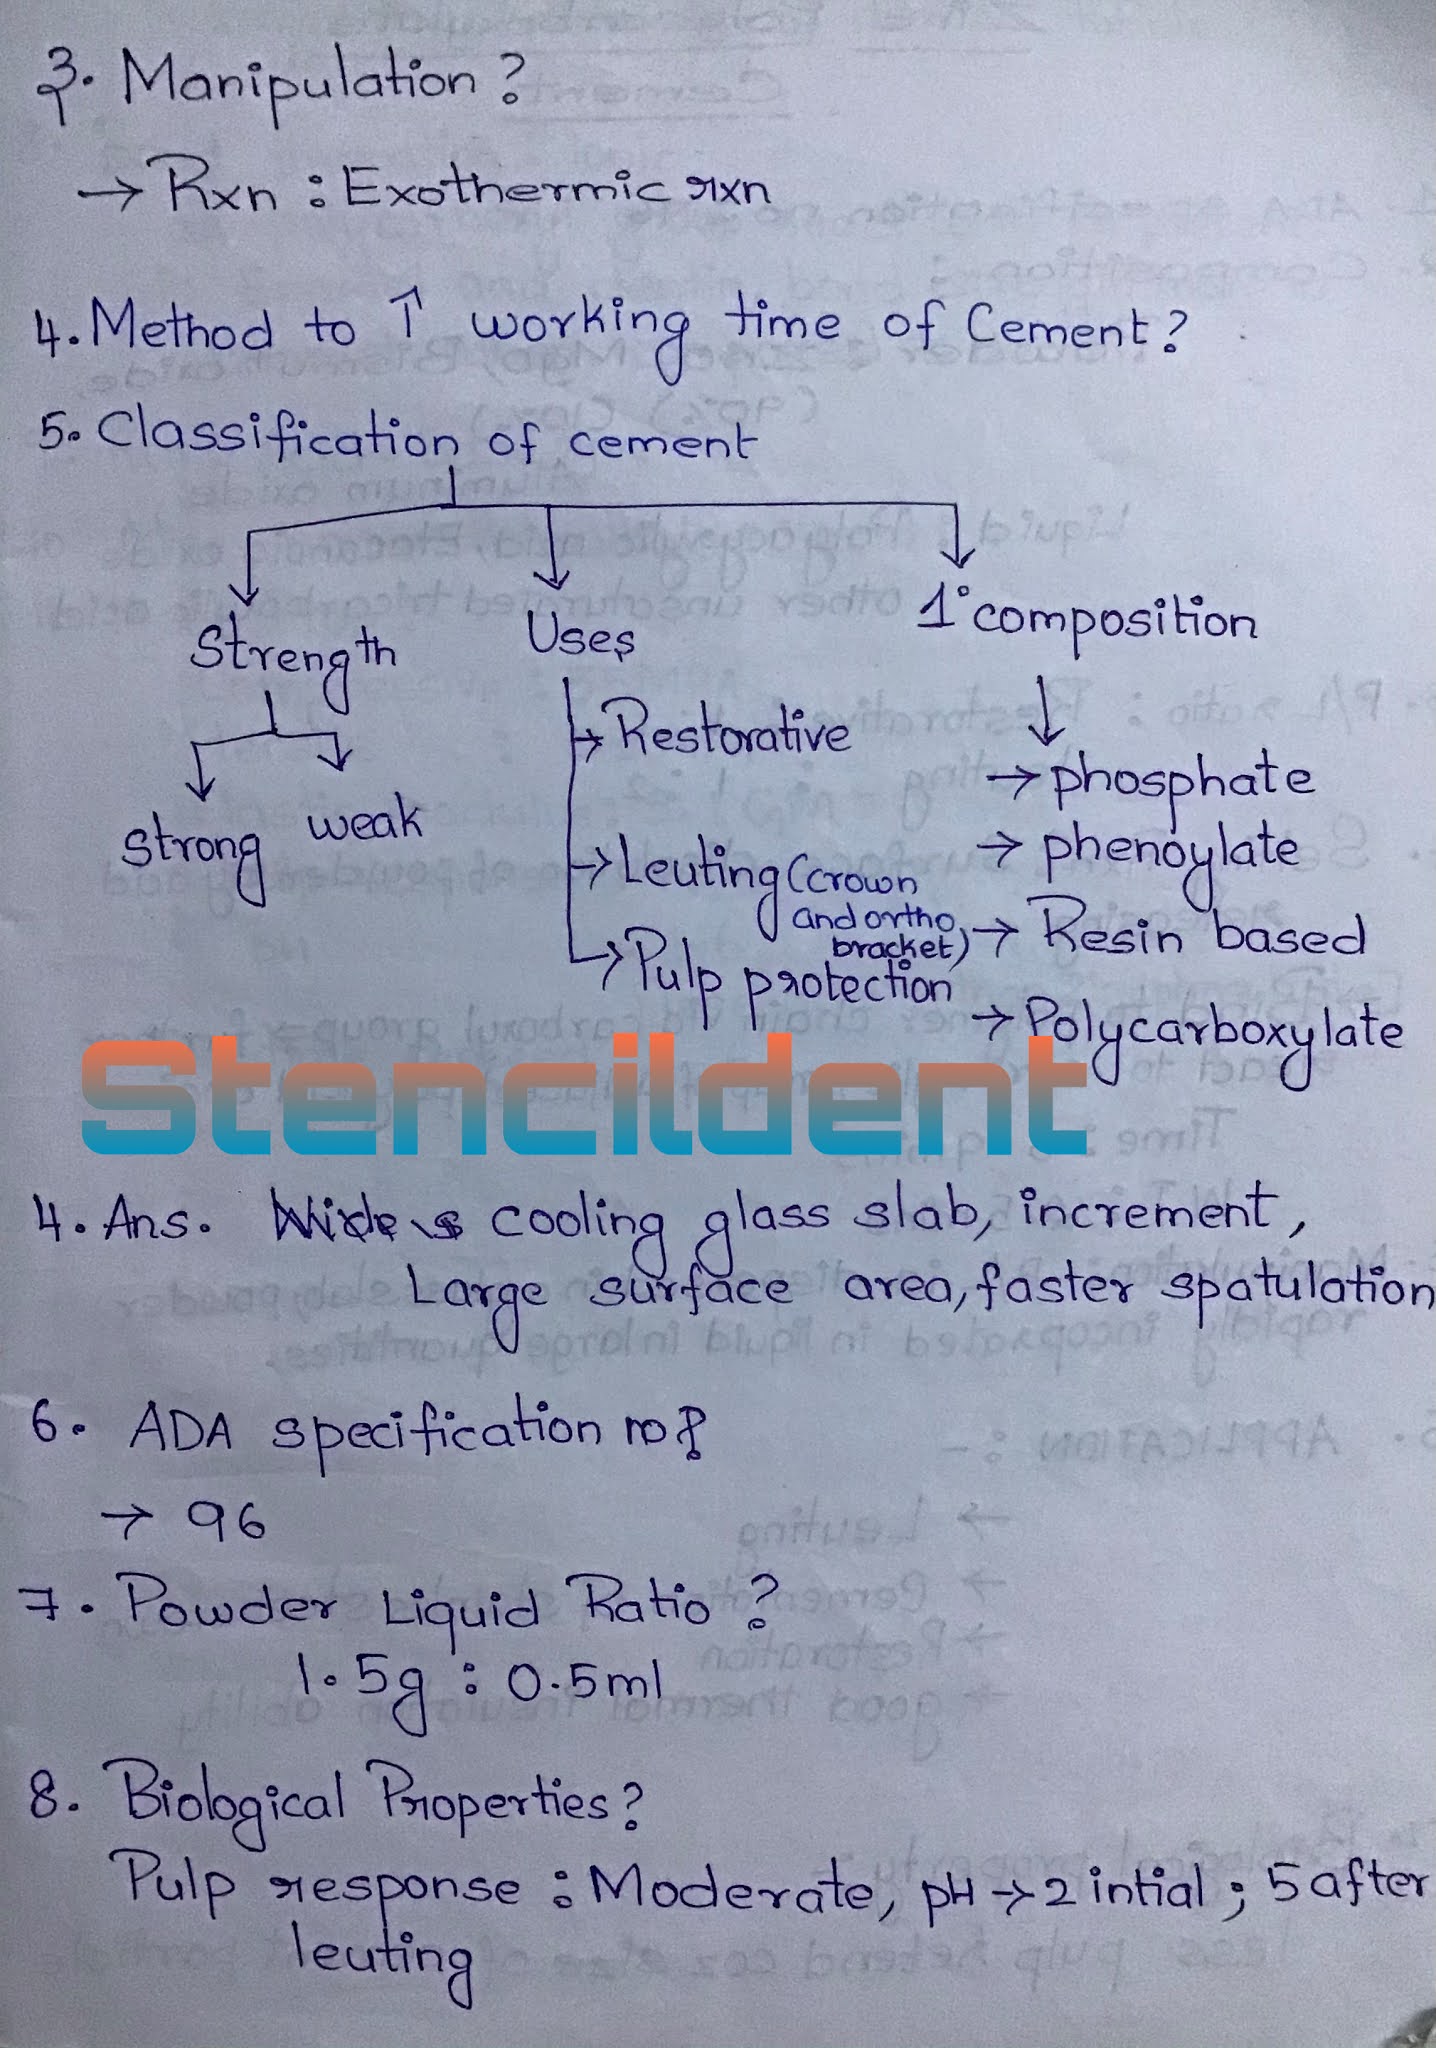 3. Manipulation?
→ Rxn : Exothermic rxn
4. Method to ↑ working time of Cement?
5. Classification of cement
Strength
Uses
1° composition
strong
weak
→ Restorative
→ Leuting (crown
and ortho
bracket)
→ Pulp protection
→ phosphate
→ phenoylate
→ Resin based
→ Polycarboxylate
Stencildent
4. Ans. cooling glass slab, increment,
Large surface area, faster spatulation
6. ADA specification no?
→ 96
7. Powder Liquid Ratio?
1.5g : 0.5ml
8. Biological Properties?
Pulp response : Moderate, pH → 2 intial ; 5 after
leuting